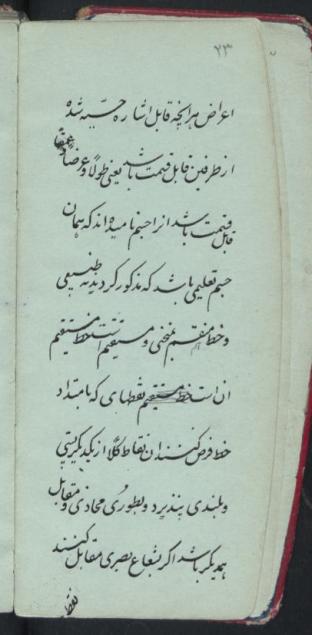 ۲۳
اعراض هر آنچه قابل اشاره حسیه شده
از طرفین قابل قسمت باشد یعنی طولاً و عرضاً و عمقاً
قابل قسمت باشد انرا جسم نامیده اند که همان
جسم تعلیمی باشد که مذکور گردید نه طبیعی
و خط منقسم بمنحنی و مستقیم است خط مستقیم
ان است خط مستقیم نقطهای که بامتداد
خط فرض کنند ان نقاط کلاً از یکدیگر پستی
و بلندی نپذیرد و بطوری محاذی و مقابل
همدیگر باشد اگر بشعاع بصری مقابل کنند
نقط